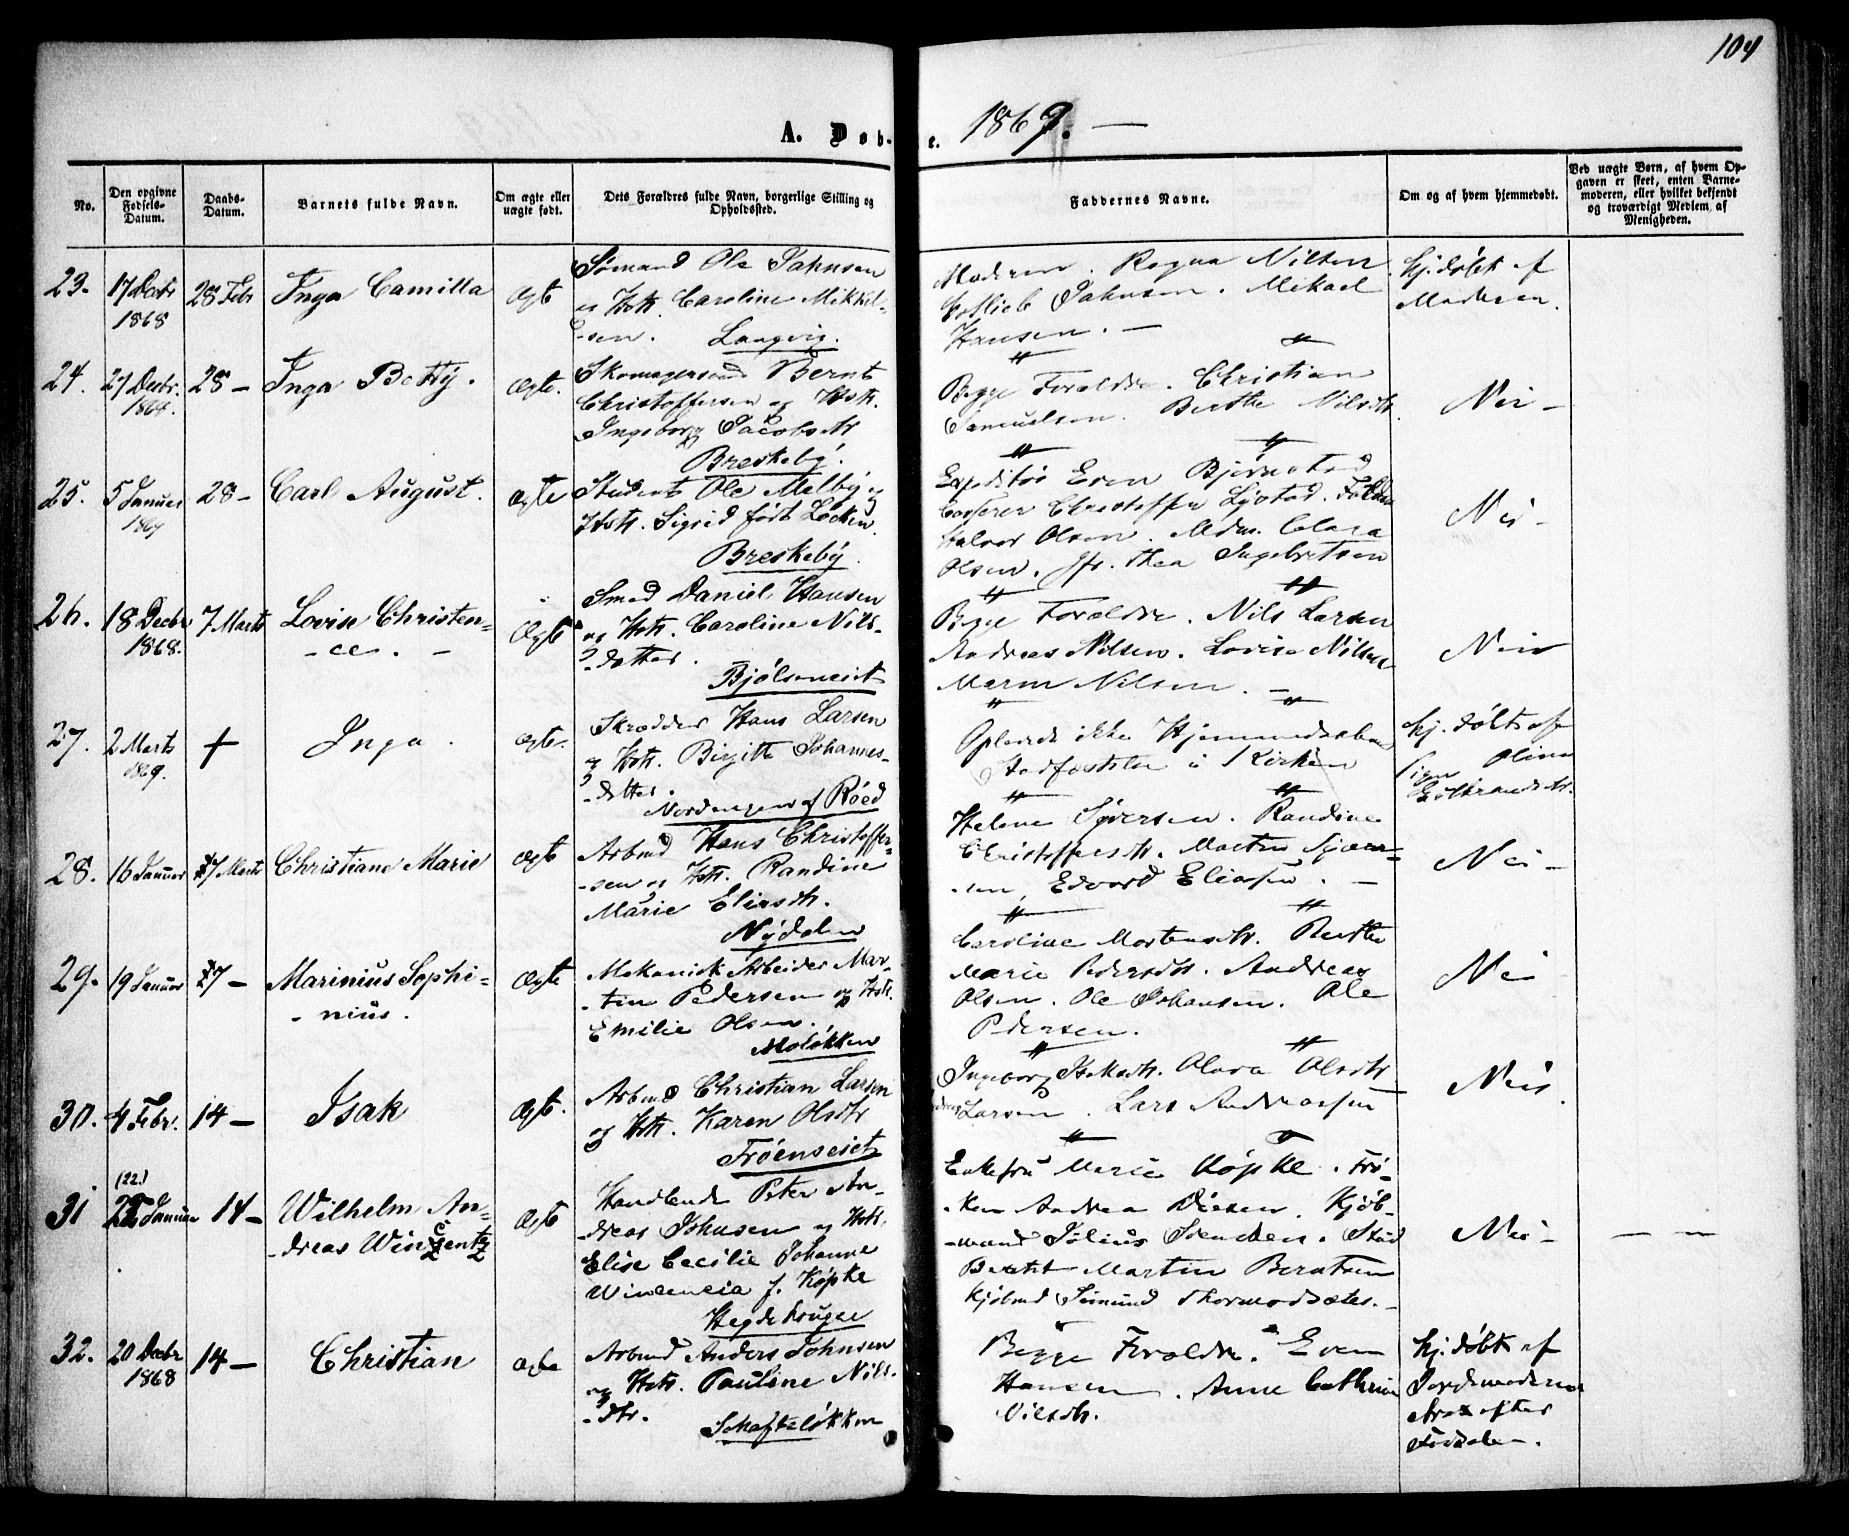 104
A. Døb- e. 1869. —
No.
Den opgivne Fødsels-Datum.
Daabs-Datum.
Barnets fulde Navn.
Om ægte eller uægte født.
Dets Forældres fulde Navn, borgerlige Stilling og Opholdssted.
Faddernes Navne.
Om og af hvem hjemmedøbt.
Ved uægte Børn, af hvem Opgaven er skeet, enten Barnemoderen, eller hvilket bekjendt og troværdigt Medlem af Menigheden.
23. 17 Decbr 1868 28 Febr Inga Camilla Ægte
Sømand Ole Jahnsen
og Hstr. Caroline Mikkel-
-sen. Langvig.
Moderen. Ragna Nilsen
Gotlieb Jahnsen. Mikael
Hansen. —
hj. døbt af
Moderen.
24. 27 Decbr. 28 — Inga Betty. Ægte.
Skomagersvend Bernt
Christoffersen og Hstr.
Ingeborg Jacobsdtr
Breskeby.
Begge Forældre. Christian
Samuelsen. Berthe Nilsdtr.
Nei —
25. 5 Januar 1869 28 — Carl August. Ægte
Student Ole Melby og
Hstr. Sigrid født Løcken.
Breskeby.
Expeditør Even Bjørnstad
Christoffer
Halvor Olsen. Mdm. Clara
Olsen. Jfr. Thea Ingebretsen
Nei —
26. 18 Decbr 1868. 7 Marts Lovise Christen-
-ce. — Ægte
Smed Daniel Hansen
og Hstr. Caroline Nils-
-datter.
Bjølseneiet
Begge Forældre. Nils Larsen
Andreas Nilsen. Lovise Nilsen
Maren Nilsen. —
Nei
27. 2 Marts 1869. + Inga. Ægte.
Skrædder Hans Larsen
og Hstr. Birgitte Johannes-
-datter.
Nordengen af Røed
Oplevede ikke Hjemmedaabens
Stadfæstelse i Kirken
hj. døbt af
Pigen Oline
Gulbrandsdtr.
28. 16 Januar 7 Marts Christiane Marie Ægte
Arbmd Hans Christoffer-
-sen og Hstr. Randine
Marie Eliasdtr.
Nydalen
Helene Syversen. Randine
Christoffersdtr. Morten
-sen, Edvard Eliasen. —
Nei —
29. 19 Januar 7 — Marinius Sophi-
-nius. Ægte
Mekanisk Arbeider Mar-
-tin Pedersen og Hstr.
Emilie Olsen.
Moløkken
Caroline Mortensdtr. Berthe
Marie Pedersdtr. Andreas
Olsen. Ole Johansen. Ole
Pedersen.
Nei
30. 4 Febr. 14 — Isak Ægte.
Arbmd Christian Larsen
og Hstr. Karen Olsdtr
Frøenseiet
Ingeborg Olava Olsdtr
Larsen. Lars Andreassen
Nei.
31 (22.) Januar 14 — Wilhelm An-
-dreas Wincentz Ægte
Handlende Peter An-
-dreas Johnsen og Hstr.
Elise Cecilie Johanne
Wincencia f. Køpke
Hegdehougen
Enkefru Marie Køpke. Frø-
-ken Andrea Diesen. Kjøb-
-mand Julius Svendsen. Stud
Martin Berntsen
Kjøbmd Simund Thormodsæter. —
Nei — — —
32. 20 Decbr 1868 14 — Christian Ægte
Arbmd Anders Johnsen
og Hstr. Pauline Nils-
-dtr.
Schafteløkken
Begge Forældre. Even
Hansen. Anne Cathrine
Nilsdtr.
hj. døbt af
Jordemoderen
strax efter
Fødselen.